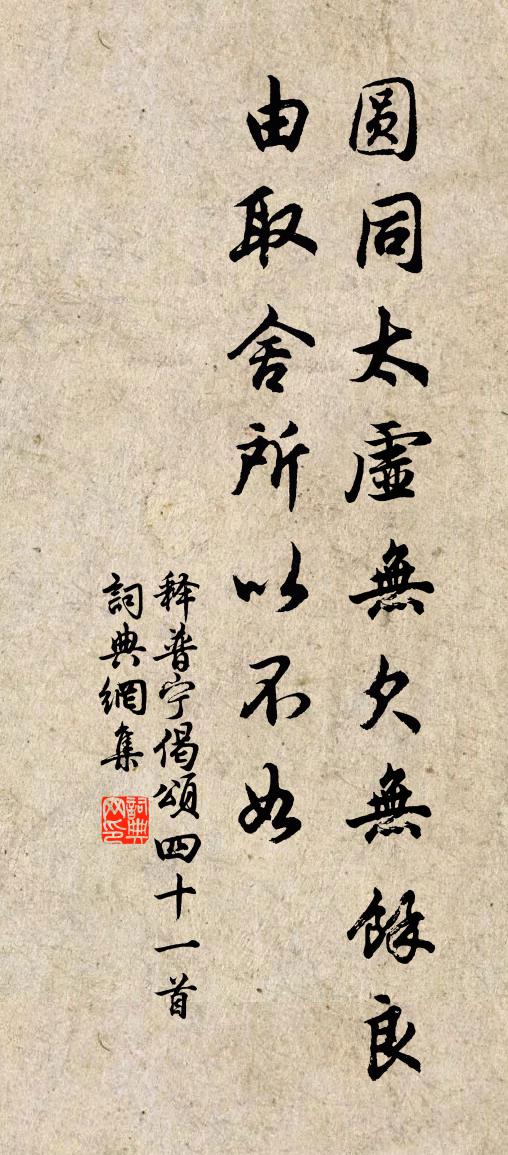 圆同太虛無欠無餘良
由取舍所以不如
释普宁偈頌四十一首
詞典網集
詞典网印